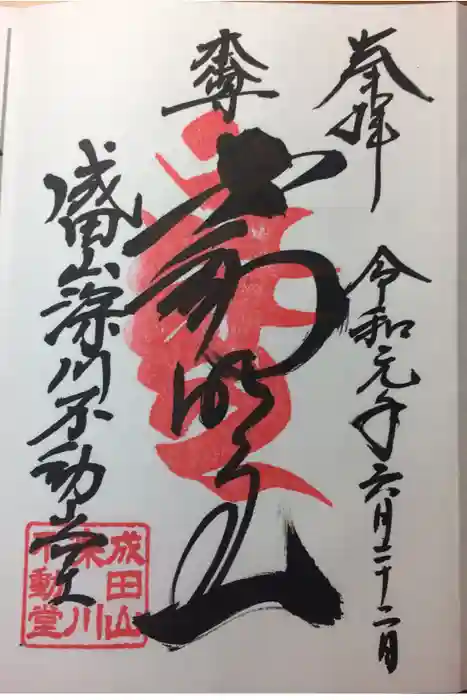 奉拝
令和元年六月二十二日
本尊
不動明王
成田山深川不動堂
成田山
深川
不動堂